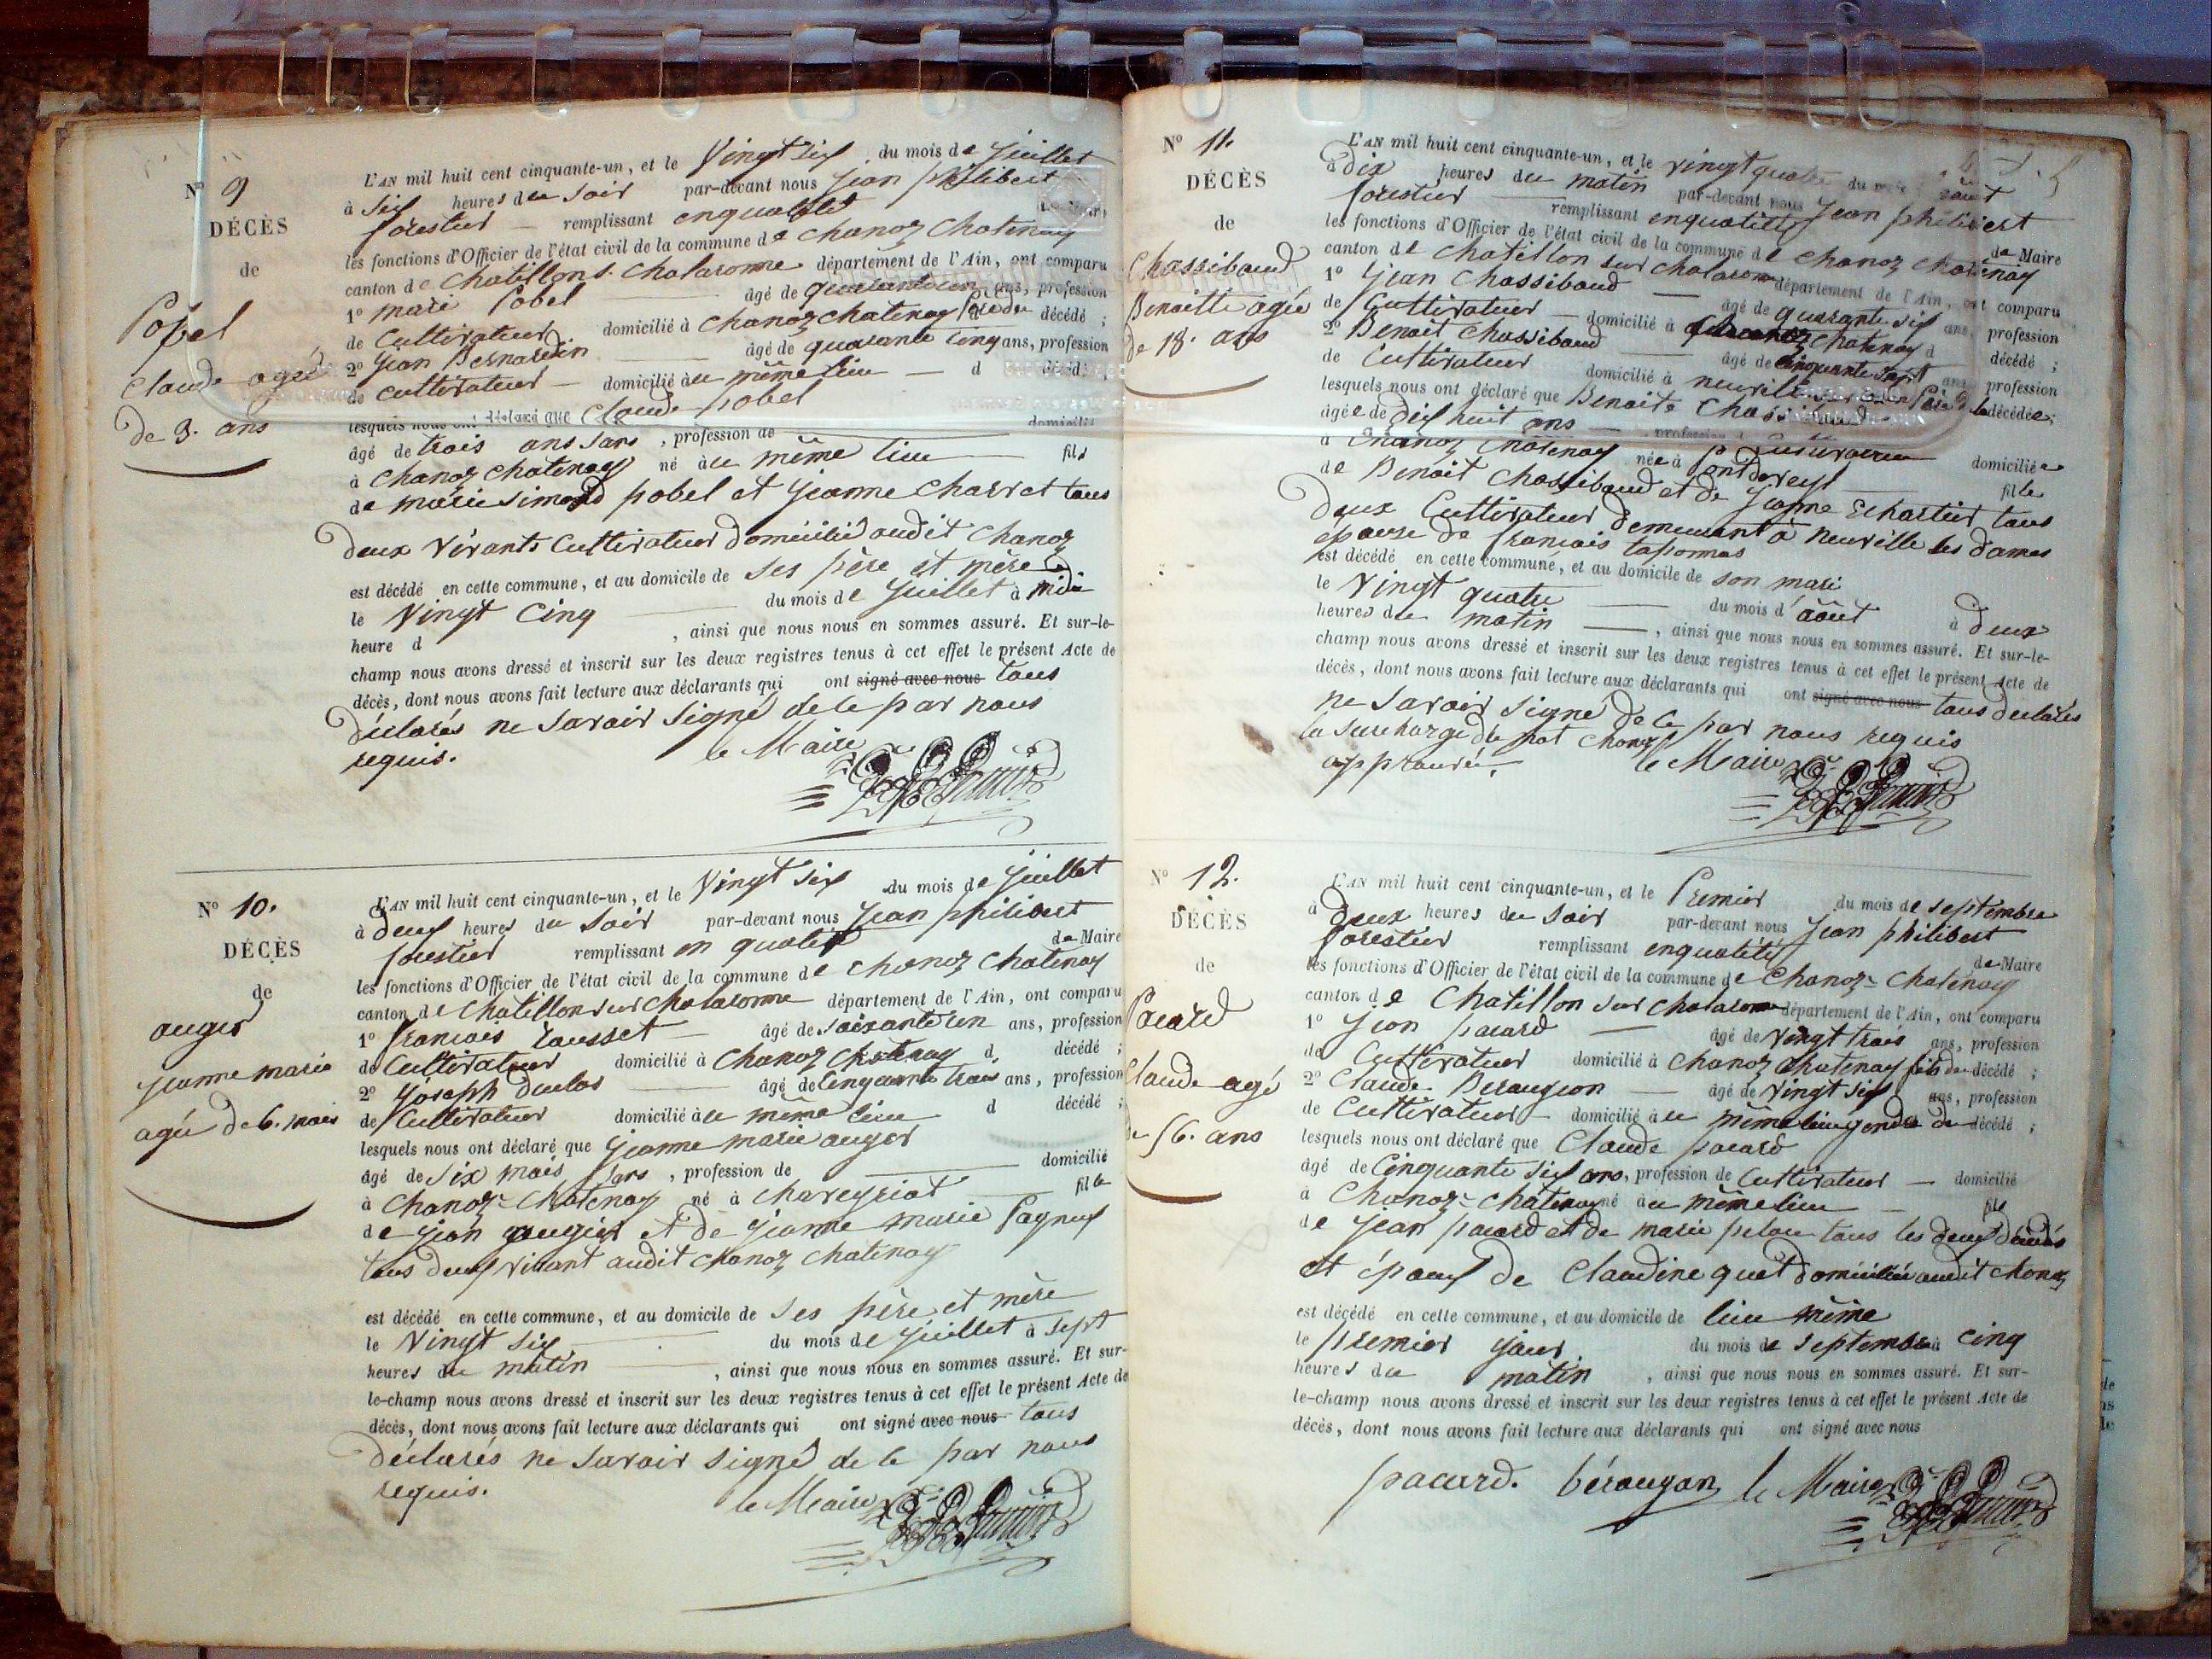 Nº 9
DÉCÈS
de
Pobel
Claude agé
de 3. ans
L'AN mil huit cent cinquante-un, et le Vingt six du mois de Juillet
à six heures du Soir par-devant nous Jean philibert
forestier remplissant enqualité
les fonctions d'Officier de l'état civil de la commune de Chanoz Chatenay
canton de Chatillon s. Chalaronne département de l'Ain, ont comparu
1º marie Pobel âgé de quarante un ans, profession
de Cultivateur domicilié à Chanoz chatenay Père du décédé ;
2º Jean Bernardin âgé de quarante cinq ans, profession
de cultivateur domicilié à u même lieu d décédé ;
lesquels nous ont déclaré que Claude pobel
âgé de trois ans sans, profession de domicilié
à Chanoz chatenay né à u même lieu fils
de marie simond pobel et Jeanne Charvet tous
deux vivants Cultivateur domicilié audit Chanoz
est décédé en cette commune, et au domicile de ses père et mère
le Vingt Cinq du mois de Juillet à midi
heure d , ainsi que nous nous en sommes assuré. Et sur-le-
champ nous avons dressé et inscrit sur les deux registres tenus à cet effet le présent Acte de
décès, dont nous avons fait lecture aux déclarants qui ont signé avec nous tous
déclarés ne savoir signé de ce par nous
requis.
le Maire
Nº 10.
DÉCÈS
de
auger
jeanne marie
agée de 6. mois
L'AN mil huit cent cinquante-un, et le Vingt six du mois de Juillet
à deux heures du Soir par-devant nous Jean philibert
forestier remplissant en qualité de Maire
les fonctions d'Officier de l'état civil de la commune de Chanoz Chatenay
canton de Chatillon sur Chalaronne département de l'Ain, ont comparu
1º francois Rousset âgé de soixante un ans, profession
de Cultivateur domicilié à Chanoz Chatenay d décédé ;
2º Joseph duclos âgé de Cinquante trois ans, profession
de Cultivateur domicilié à u même lieu d décédé ;
lesquels nous ont déclaré que Jeanne marie auger
âgé de six mois sans, profession de domicilié
à Chanoz-Chatenay né à Chaveyriat fille
de Jean augier et de Jeanne marie Pagneux
tous deux vivant audit Chanoz Chatenay
est décédé en cette commune, et au domicile de ses père et mère
le Vingt six du mois de Juillet à sept
heures du matin , ainsi que nous nous en sommes assuré. Et sur-
le-champ nous avons dressé et inscrit sur les deux registres tenus à cet effet le présent Acte de
décès, dont nous avons fait lecture aux déclarants qui ont signé avec nous tous
déclarés ne savoir signé de ce par nous
requis.
le Maire
Nº 11.
DÉCÈS
de
Chassibaud
Benoitte agée
de 18. ans
L'AN mil huit cent cinquante-un, et le vingt quatre du mois août
à dix heures du matin par-devant nous Jean philibert
forestier remplissant enqualité de Maire
les fonctions d'Officier de l'état civil de la commune de Chanoz Chatenay
canton de Chatillon sur Chalaronne département de l'Ain, ont comparu
1º Jean Chassibaud âgé de quarante six ans, profession
de Cultivateur domicilié à Chanoz Chatenay d décédé ;
2º Benoit Chassibaud âgé de Cinquante Sept ans, profession
de Cultivateur domicilié à neuville Père de la décédée ;
lesquels nous ont déclaré que Benoite
âgée de dix huit ans domiciliée
à Chanoz Chatenay née à pont de veyl fille
de Benoit Chassibaud et de Jeanne Echartier tous
deux Cultivateur demeurant à neuville les dames
épouse de francois taponnas
est décédé en cette commune, et au domicile de son mari
le Vingt quatre du mois d'août à deux
heures du matin , ainsi que nous nous en sommes assuré. Et sur-le-
champ nous avons dressé et inscrit sur les deux registres tenus à cet effet le présent Acte de
décès, dont nous avons fait lecture aux déclarants qui ont signé avec nous tous déclarés
ne savoir signé de ce par nous requis
la surcharge du mot Chanoz
approuvée.
le Maire
Nº 12.
DÉCÈS
de
Pacard
Claude agé
de 56. ans
L'AN mil huit cent cinquante-un, et le Premier du mois de septembre
à deux heures du soir par-devant nous Jean philibert
forestier remplissant enqualité de Maire
les fonctions d'Officier de l'état civil de la commune de Chanoz-Chatenay
canton de Chatillon sur Chalaronne département de l'Ain, ont comparu
1º Jean pacard âgé de vingt trois ans, profession
de Cultivateur domicilié à Chanoz Chatenay fils du décédé ;
2º Claude Beraugeon âgé de vingt six ans, profession
de Cultivateur domicilié à u même lieu gendre du décédé ;
lesquels nous ont déclaré que Claude pacard
âgé de Cinquante six ans, profession de Cultivateur domicilié
à Chanoz-Chatenay né à u même lieu fils
de Jean pacard et de marie pelou tous les deux décédés
et époux de Claudine quet domiciliée audit Chanoz
est décédé en cette commune, et au domicile de lieu même
le premier jour du mois de septembre à cinq
heures du matin , ainsi que nous nous en sommes assuré. Et sur-
le-champ nous avons dressé et inscrit sur les deux registres tenus à cet effet le présent Acte de
décès, dont nous avons fait lecture aux déclarants qui ont signé avec nous
pacard. béraujon le Maire